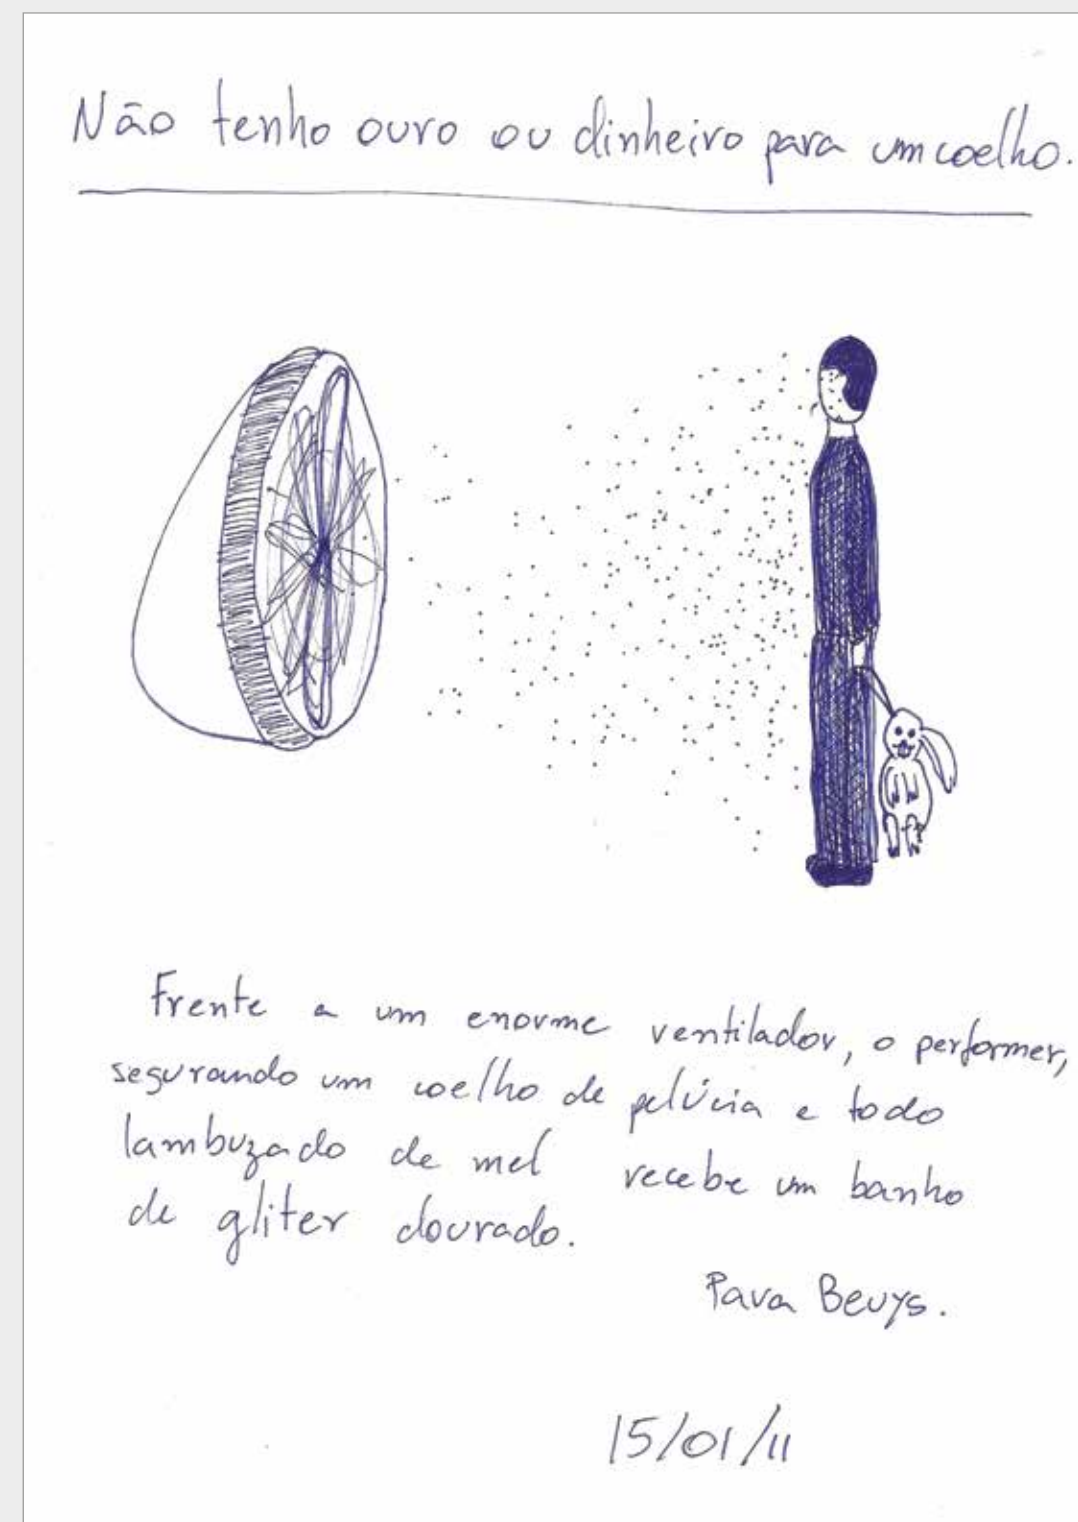 Não tenho ouro ou dinheiro para um coelho.
Frente a um enorme ventilador, o performer,
segurando um coelho de pelúcia e todo
lambuzado de mel recebe um banho
de gliter dourado.
Para Beuys.
15/01/11